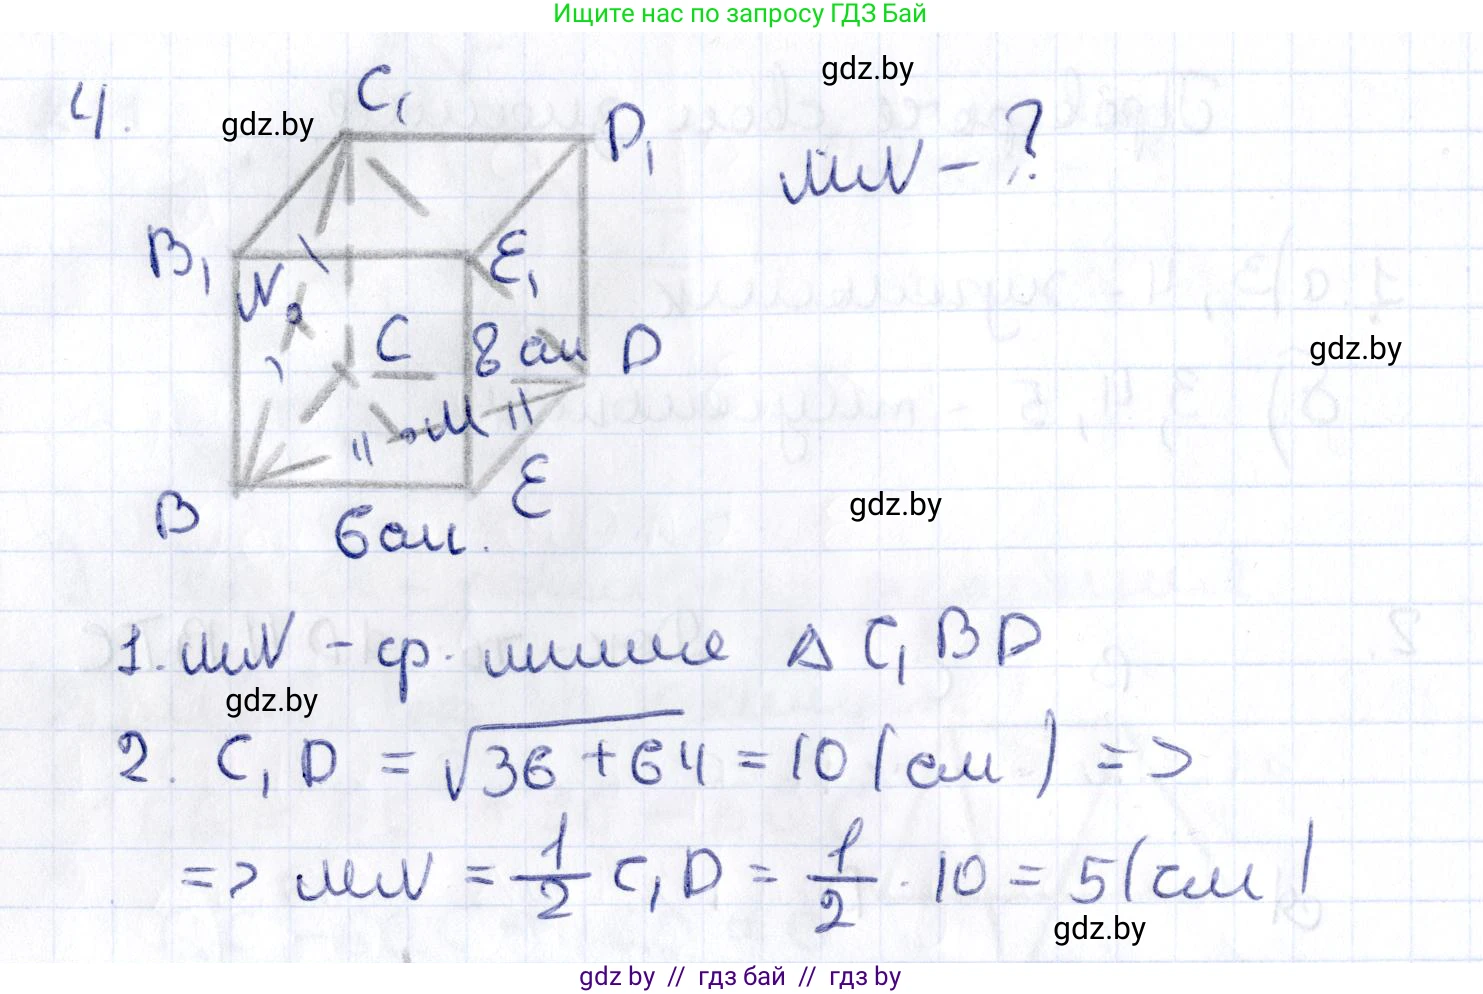 Ищите нас по запросу ГДЗ Бай
4.
gdz.by
C₁
D₁
gdz.by
MN - ?
B₁
N
E₁
C
8 см
D
gdz.by
M
B
E
6 см.
gdz.by
1. MN - ср. линия Δ C₁BD
gdz.by
2. C₁D = √36 + 64 = 10 (см) =>
=> MN = 1/2 C₁D = 1/2 · 10 = 5 (см)
gdz.by
gdz by // гдз бай // гдз by